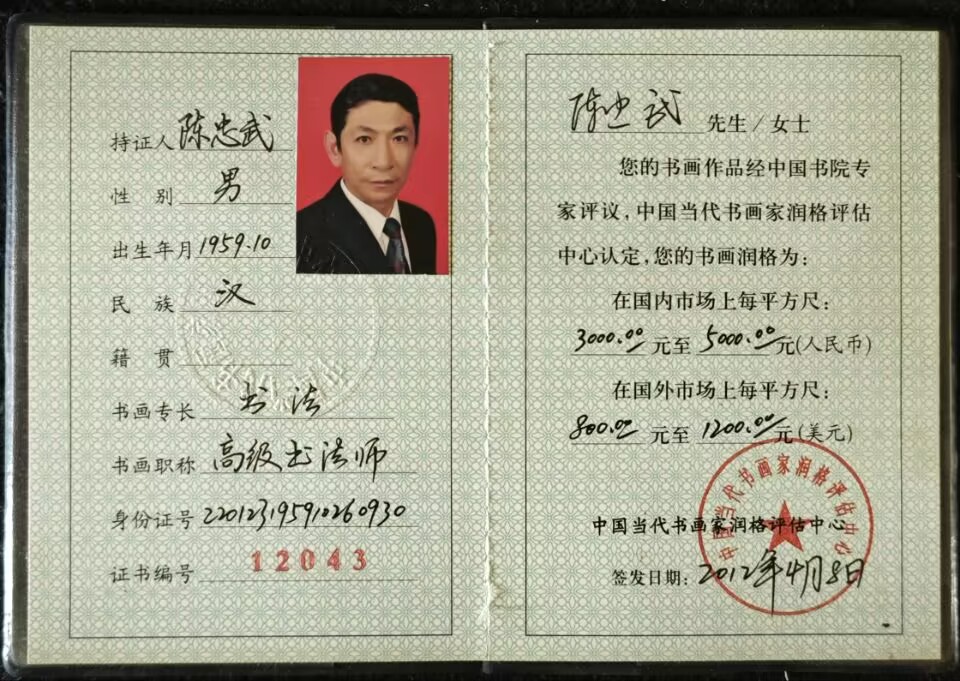 持证人 陈忠武
性 别 男
出生年月 1959.10
民 族 汉
籍 贯
书画专长 书法
书画职称 高级书法师
身份证号 220123195910260930
证书编号 12043
陈忠武 先生/女士
您的书画作品经中国书院专
家评议,中国当代书画家润格评估
中心认定,您的书画润格为:
在国内市场上每平方尺:
3000.00 元至 5000.00 元(人民币)
在国外市场上每平方尺:
800.00 元至 1200.00 元(美元)
中国当代书画家润格评估中心
签发日期: 2012年4月8日
中国当代书画家润格评估中心